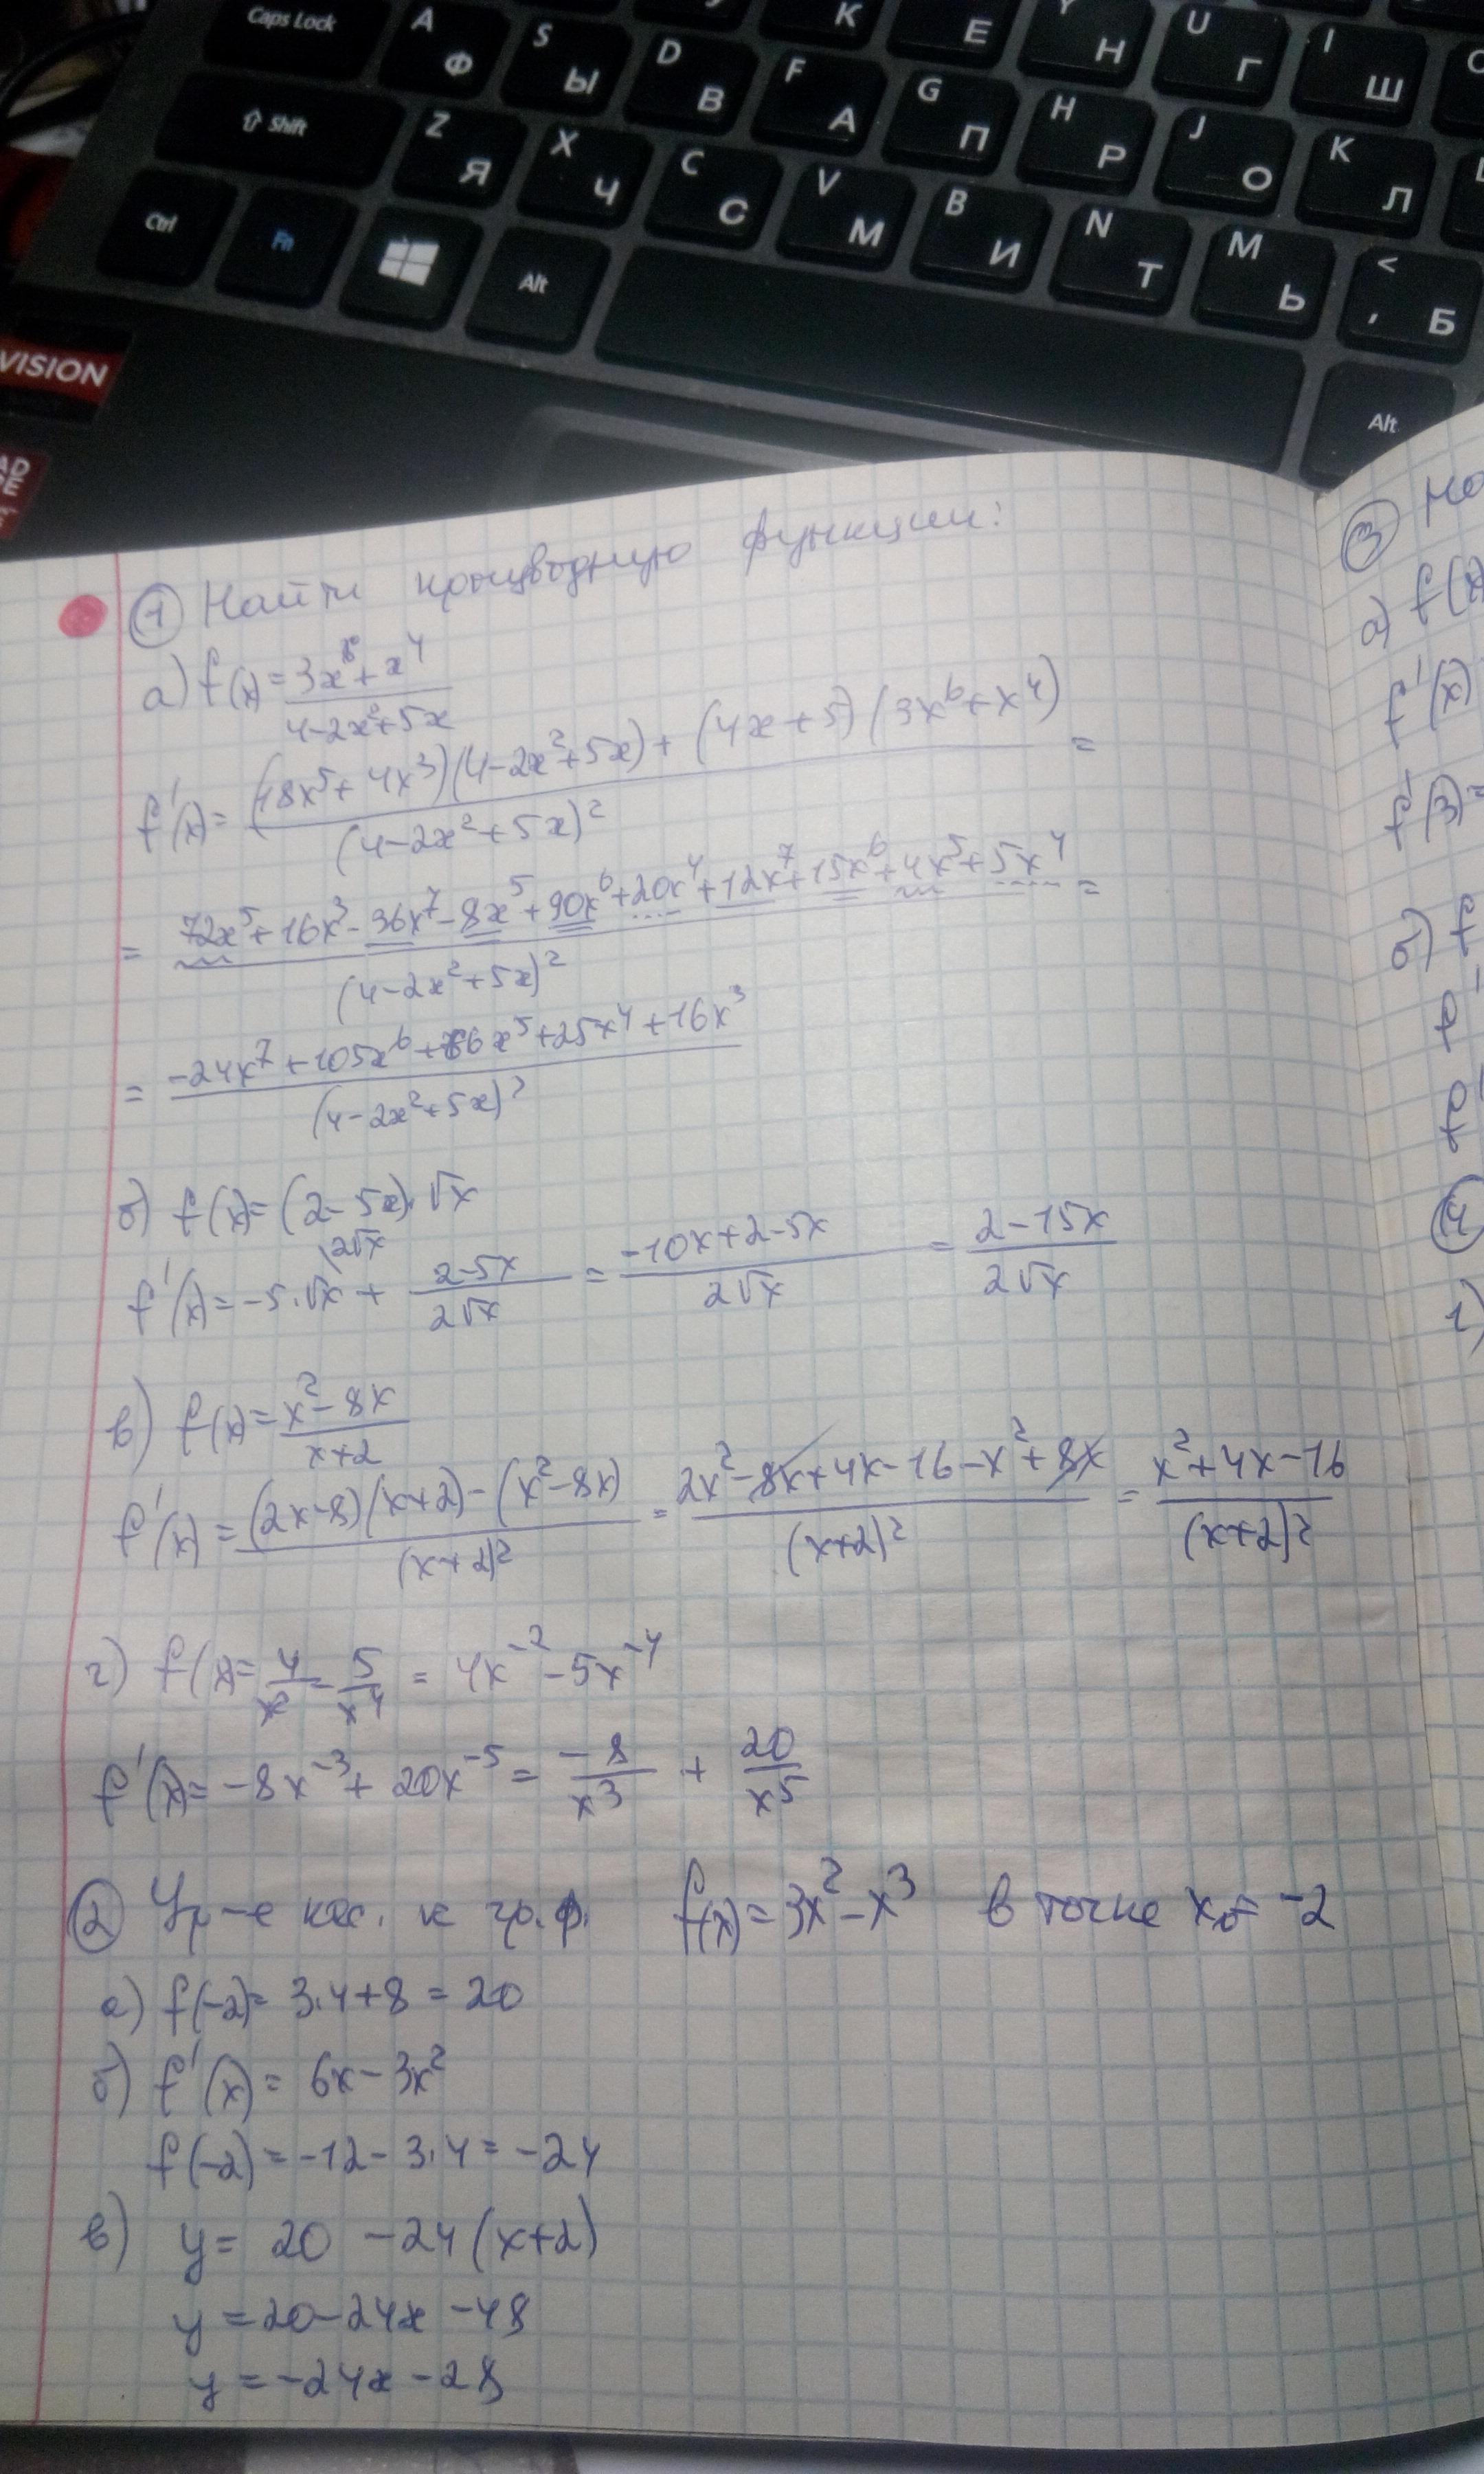 Caps Lock A Ф S Ы D В F А G П H Р J О K Л
К Е Y Н U Г I Ш
⇧ Shift Z Я X Ч C С V М B И N Т M Ь < , Б
Ctrl Fn Alt Alt
VISION
① Найти производную функции:
а) f(x) = (3x⁶+x⁴)/(4-2x²+5x)
f'(x) = ((18x⁵+4x³)(4-2x²+5x) + (4x+5)(3x⁶+x⁴))/(4-2x²+5x)² =
= (72x⁵+16x³-36x⁷-8x⁵+90x⁶+20x⁴+12x⁷+15x⁶+4x⁵+5x⁴)/(4-2x²+5x)² =
= (-24x⁷+105x⁶+66x⁵+25x⁴+16x³)/(4-2x²+5x)²
б) f(x) = (2-5x)·√x
f'(x) = -5·√x \2√x + (2-5x)/(2√x) = (-10x+2-5x)/(2√x) = (2-15x)/(2√x)
в) f(x) = (x²-8x)/(x+2)
f'(x) = ((2x-8)(x+2)-(x²-8x))/(x+2)² = (2x²-8x+4x-16-x²+8x)/(x+2)² = (x²+4x-16)/(x+2)²
г) f(x) = 4/x² - 5/x⁴ = 4x⁻²-5x⁻⁴
f'(x) = -8x⁻³+20x⁻⁵ = -8/x³ + 20/x⁵
② Ур-е кас. к гр. ф. f(x) = 3x²-x³ в точке x₀ = -2
а) f(-2) = 3·4+8 = 20
б) f'(x) = 6x-3x²
f(-2) = -12-3·4 = -24
в) y = 20 -24(x+2)
y = 20-24x-48
y = -24x-28
③
а) f(x)
f'(x)
f'(3) =
б) f
④
1)